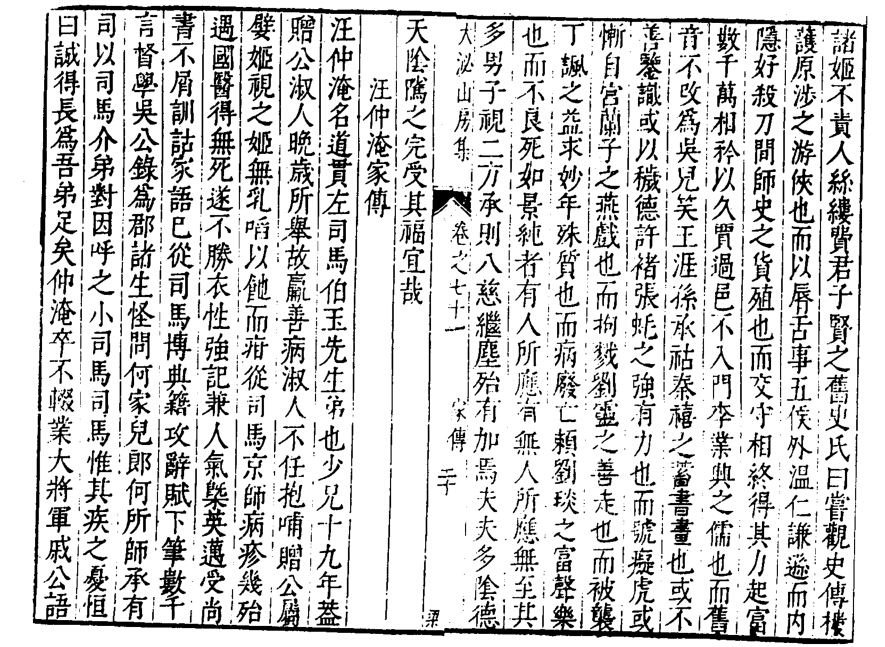 諸姬不責人絲縷費君子賢之舊史氏曰嘗觀史傳樓
護原涉之游俠也而以唇舌事五侯外溫仁謙遜而内
隱好殺刀間師史之貨殖也而交守相終得其力起富
數千萬相矜以久賈過邑不入門李業興之儒也而舊
音不改爲吳兒笑王涯孫承祜秦禧之蓄書畫也或不
善鑒識或以穢德許褚張蚝之強有力也而號癡虎或
慚自宮蘭子之燕戲也而拘戮劉靈之善走也而被襲
丁諷之益求妙年殊質也而病廢亡賴劉琰之富聲樂
也而不良死如景純者有人所應有無人所應無至其
多男子視二方承則八慈繼塵殆有加焉夫夫多陰德
大泌山房集
卷之七十一
家傳
二十
天陰隲之完受其福宜哉
汪仲淹家傳
汪仲淹名道貫左司馬伯玉先生弟也少兄十九年葢
贈公淑人晚歲所舉故羸善病淑人不任抱哺贈公屬
嬖姬視之姬無乳啗以飴而疳從司馬京師病疹幾殆
遇國醫得無死遂不勝衣性強記兼人氣槩英邁受尚
書不屑訓詁家語已從司馬博典籍攻辭賦下筆數千
言督學吳公錄爲郡諸生怪問何家兒郎何所師承有
司以司馬介弟對因呼之小司馬司馬惟其疾之憂恒
曰誠得長爲吾弟足矣仲淹卒不輟業大將軍戚公語
梁